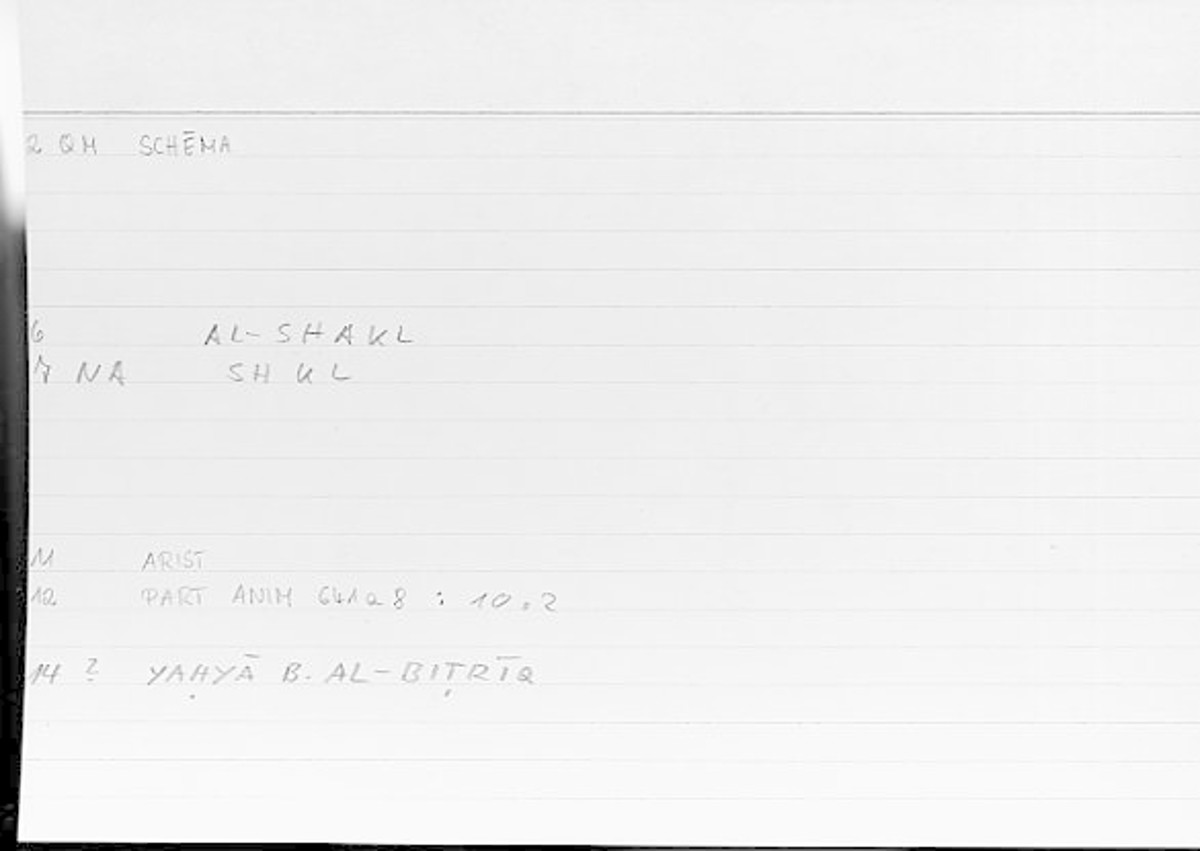 2 QM SCHĒMA
6 AL-SHAKL
7 NA SH K L
11 ARIST
12 PART ANIM 641a8 : 10.2
14 ? YAḤYĀ B. AL-BIṬRĪQ